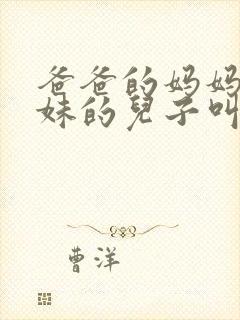 爸爸的妈妈
妹的兒子叫
曹洋